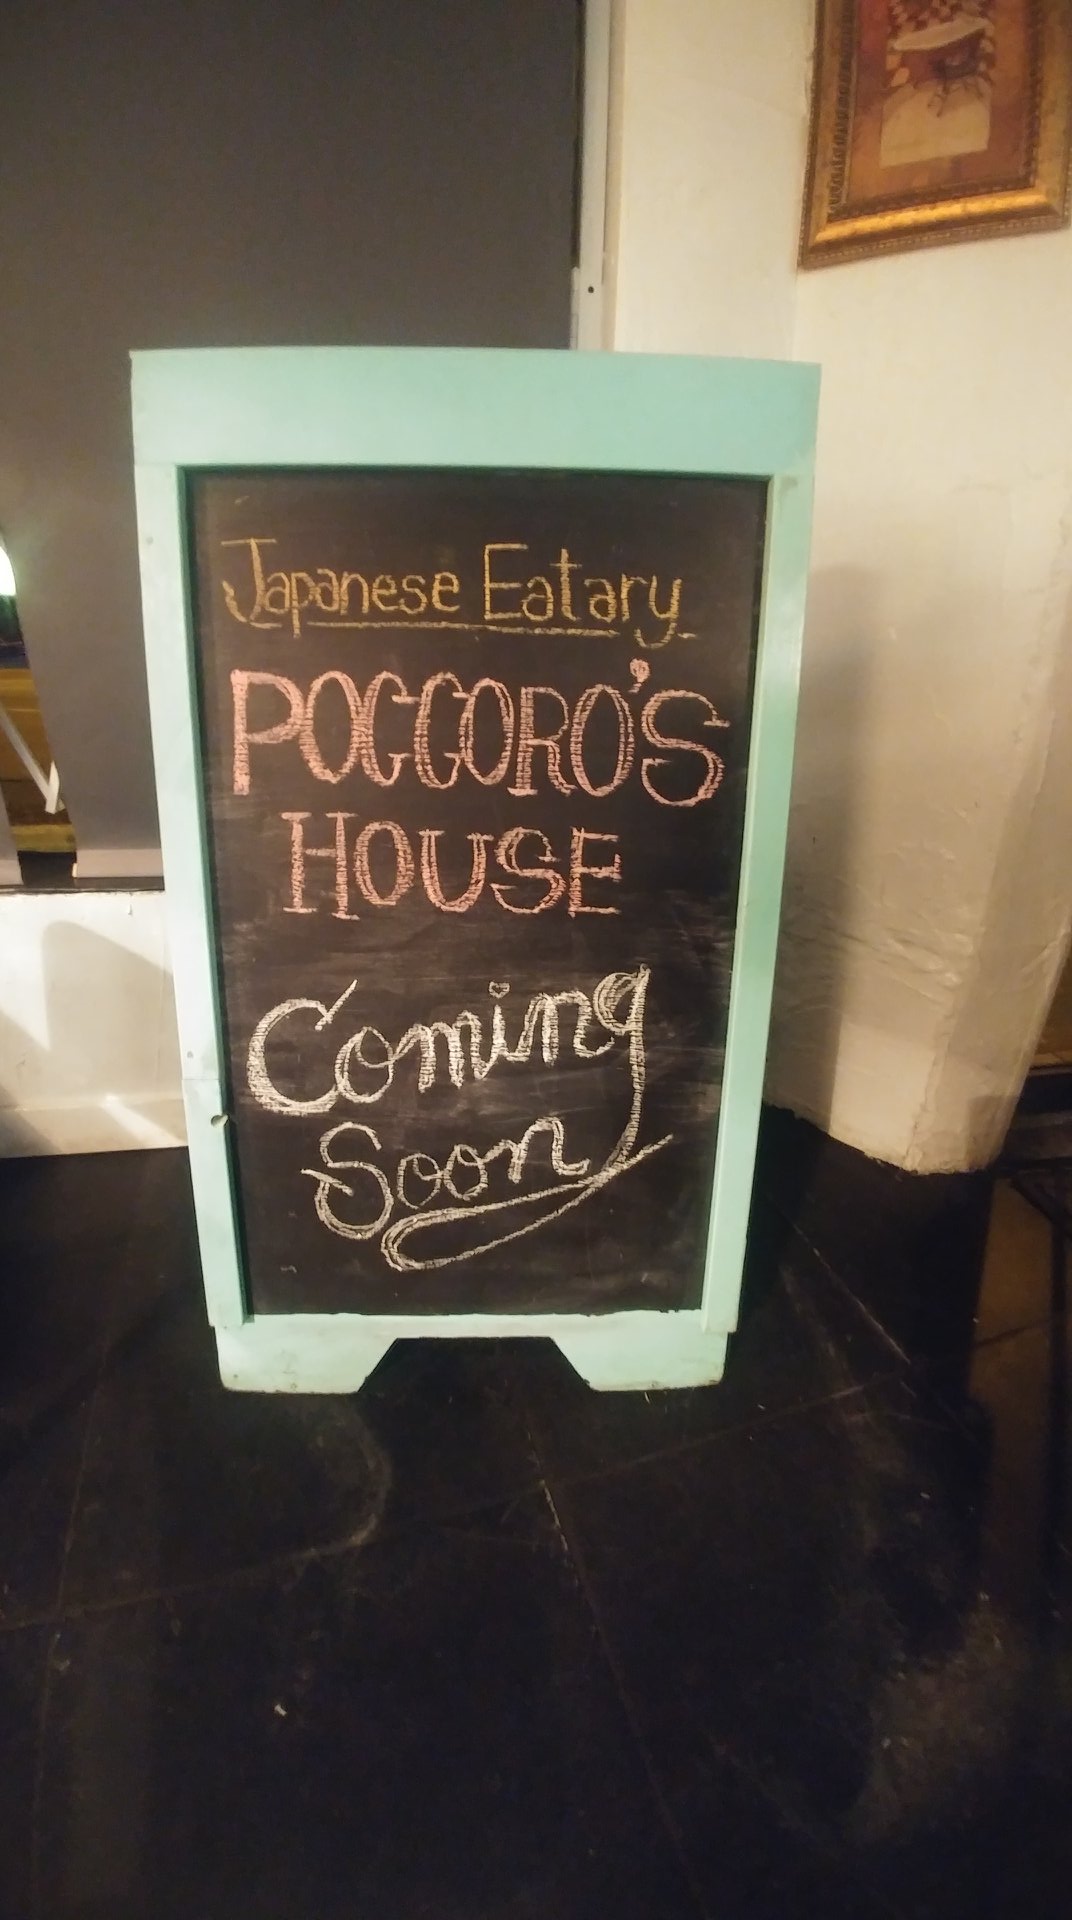 Japanese Eatary
POGGORO'S
HOUSE
Coming
Soon